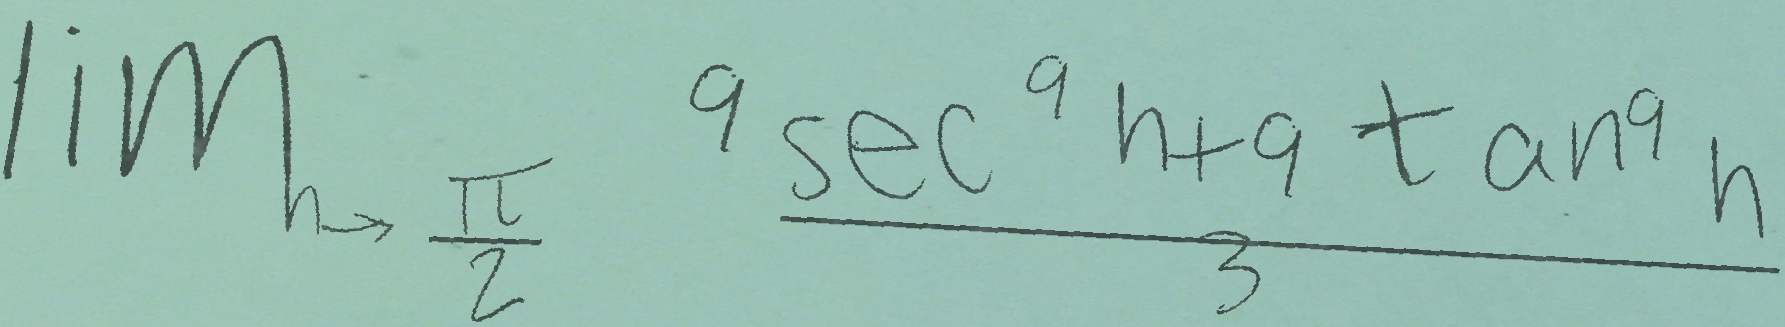 \lim_{h \to \frac{\pi}{2}} \frac{9 \sec^9 h + 9 \tan^9 h}{3}